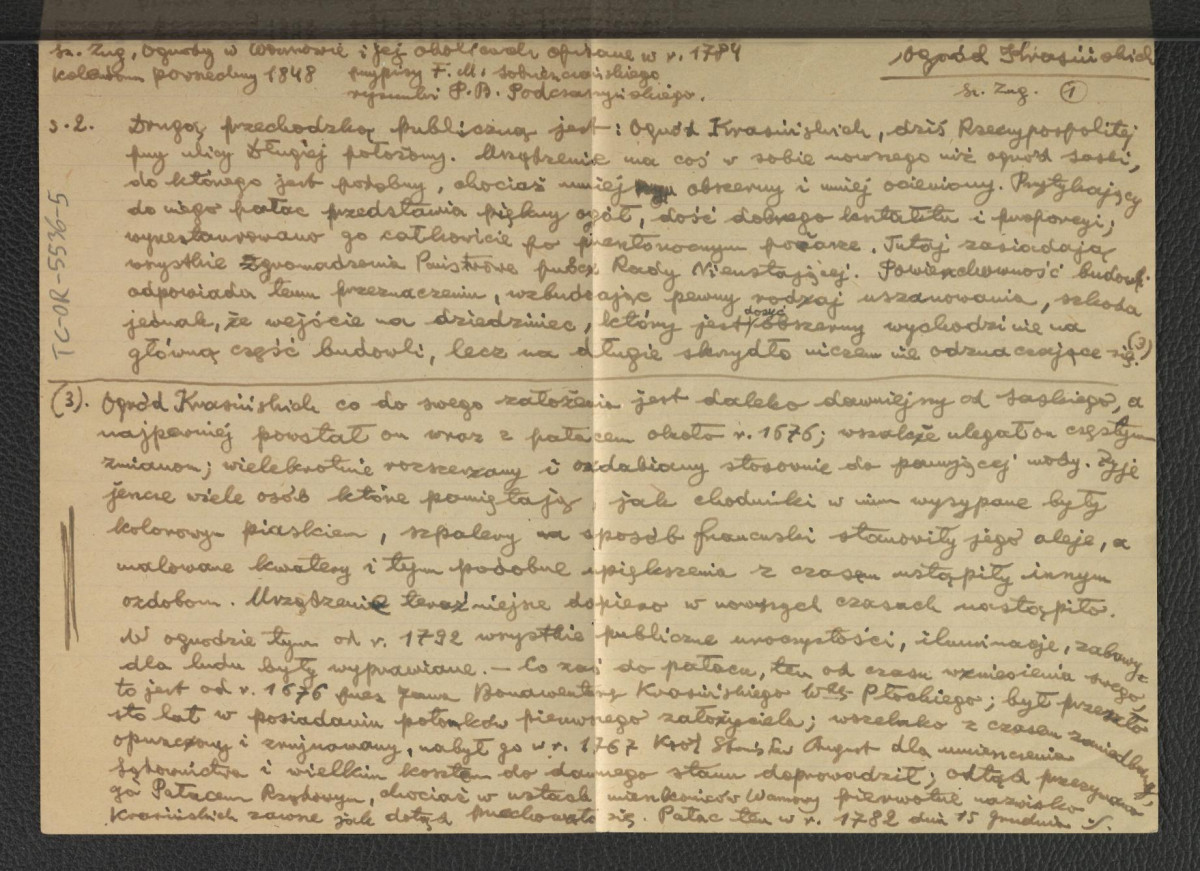 Sz. Zug, Ogrody w Warszawie i jej okolicach opisane w r. 1784
Ogród Krasińskich
Kalendarz powszechny 1848 przypisy F. M. Sobieszczańskiego
rysunki P. B. Podczaszyńskiego.
Sz. Zug. 1
s. 2. Drugą przechodzką publiczną jest: Ogród Krasińskich, dziś Rzeczypospolitej
przy ulicy Długiej położony. Urządzenie ma coś w sobie nowszego niż ogród saski,
do którego jest podobny, chociaż mniej obszerny i mniej ocieniony. Przytykający
do niego pałac przedstawia piękny ogół, dość dobrego kształtu i proporcyi;
wyrestaurowano go całkowicie po przeszłorocznym pożarze. Tutaj zasiadają
wszystkie zgromadzenia Państwowe prócz Rady Nieustającej. Powierzchowność budowli
odpowiada temu przeznaczeniu, wzbudzając pewny rodzaj uszanowania, szkoda
jednak, że wejście na dziedziniec, który jest dosyć obszerny wychodzi nie na
główną część budowli, lecz na długie skrzydło niczem nie odznaczające się. (3)
(3). Ogród Krasińskich co do swego założenia jest daleko dawniejszy od saskiego, a
najpewniej powstał on wraz z pałacem około r. 1676; wszakże ulegał on częstym
zmianom; wielekrotnie rozszerzany i ozdabiany stosownie do panującej mody. Żyje
jeszcze wiele osób które pamiętają jak chodniki w nim wysypane były
kolorowym piaskiem, szpalery na sposób francuski stanowiły jego aleje, a
malowane kwatery i tym podobne upiększenia z czasem ustąpiły innym
ozdobom. Urządzenie teraźniejsze dopiero w nowszych czasach nastąpiło.
W ogrodzie tym od r. 1792 wszystkie publiczne uroczystości, iluminacje, zabawy
dla ludu były wyprawiane. — Co zaś do pałacu, ten od czasu wzniesienia swego,
to jest od r. 1676 przez Jana Bonawenturę Krasińskiego Wdę Płockiego; był przeszło
sto lat w posiadaniu potomków pierwszego założyciela; wszelako z czasem zaniedbany,
opuszczony i zrujnowany, nabył go w r. 1767 Król Stanisław August dla umieszczenia
Sądownictwa i wielkim kosztem do dawnego stanu doprowadził; odtąd przezywano
go Pałacem Rządowym, chociaż w ustach mieszkańców Warszawy pierwotne nazwisko
Krasińskich zawsze jak dotąd przechowało się. Pałac ten w r. 1782 dnia 15 grudnia
TC-OR-5536-5